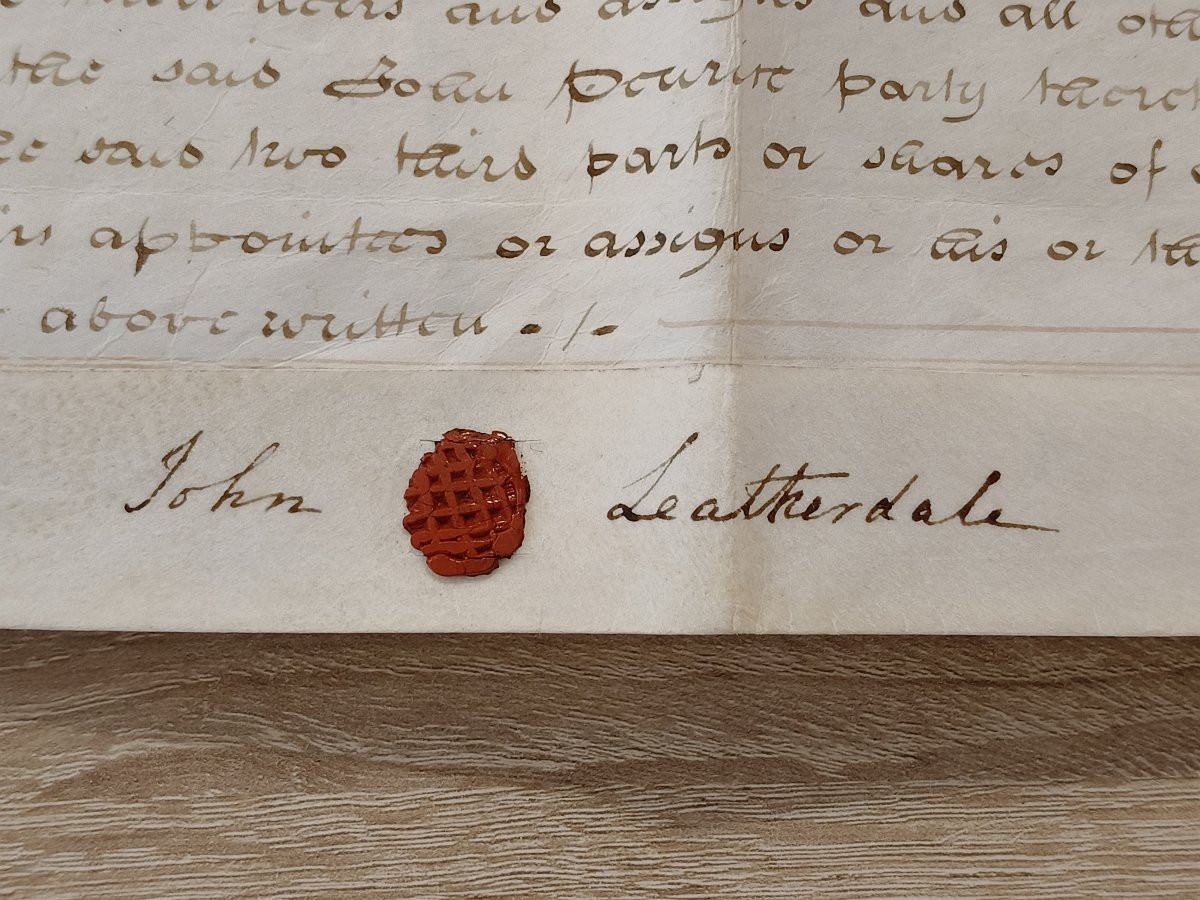 and assigns and all
the said John Pewrie party
said two third parts or shares of
appointees or assigns or his or
above written . / .
John Leatherdale